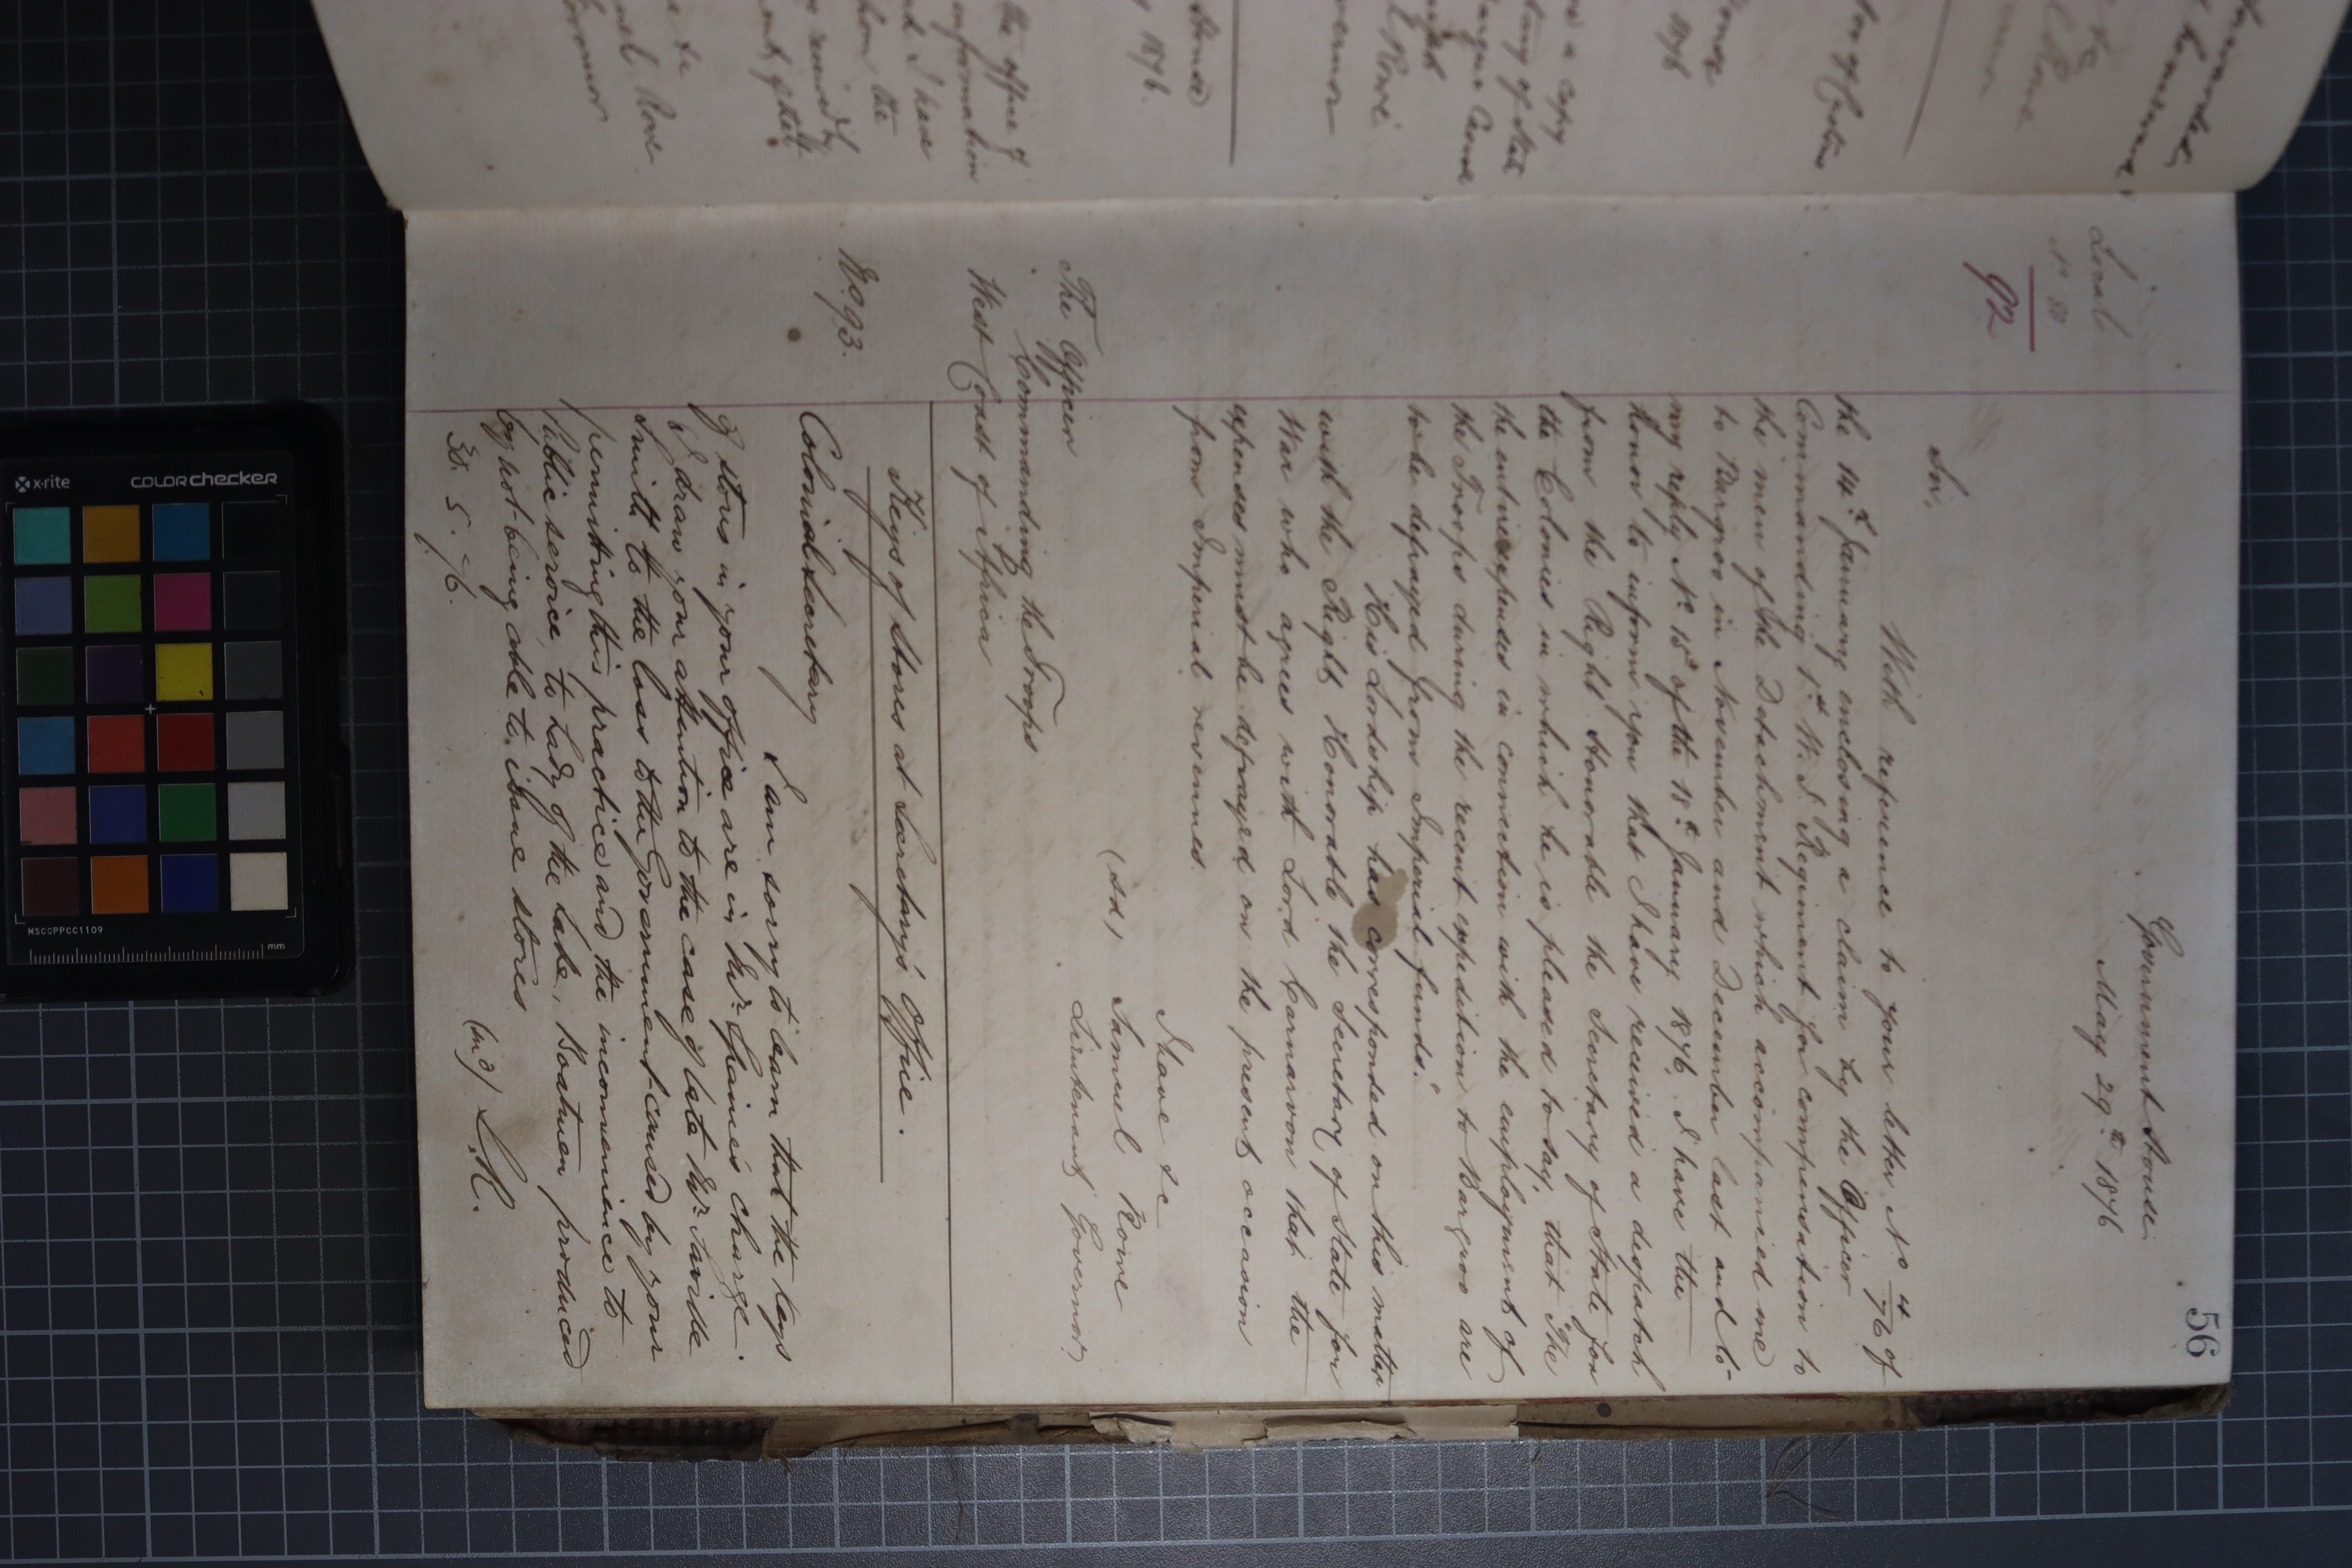 56
Government House
May 29th 1876
Local
No 80
92
Sir,
With reference to your letter No 4/76 of
the 14th January enclosing a claim by the Officer
Commanding 1st W. I. Regiment for compensation to
the men of the Detachment which accompanied me
to Bargroo in November and December last and to
my reply No 15 of the 18th January 1876, I have the
honor to inform you that I have received a despatch
from the Right Honorable the Secretary of State for
the Colonies in which he is pleased to say, that "The
the entire expenses in connection with the employment of
the Troops during the recent expedition to Bargroo are
to be defrayed from Imperial funds."
His Lordship has corresponded on this matter
with the Right Honorable the Secretary of State for
War who agrees with Lord Carnarvon that the
expenses must be defrayed on the present occasion
from Imperial revenues.
I have &c
(Sd) Samuel Rowe
Lieutenant Governor
The Officer
Commanding the Troops
West Coast of Africa
No 93.
Keys of Stores at Secretary's Office.
Colonial Secretary
I am sorry to learn that the keys
of stores in your office are in Mr. charge.
I draw your attention to the case of late Mr.
Smith to the loss to the Government caused by your
permitting this practice and the inconvenience to
Public service, to Lady of the Lake, Boatmen produced
by not being able to issue stores
30. 5. 76.
S.R.
the office of
information
and I have
the
received by
Rowe
Governor
1876.
a copy
of State
Rowe
1876